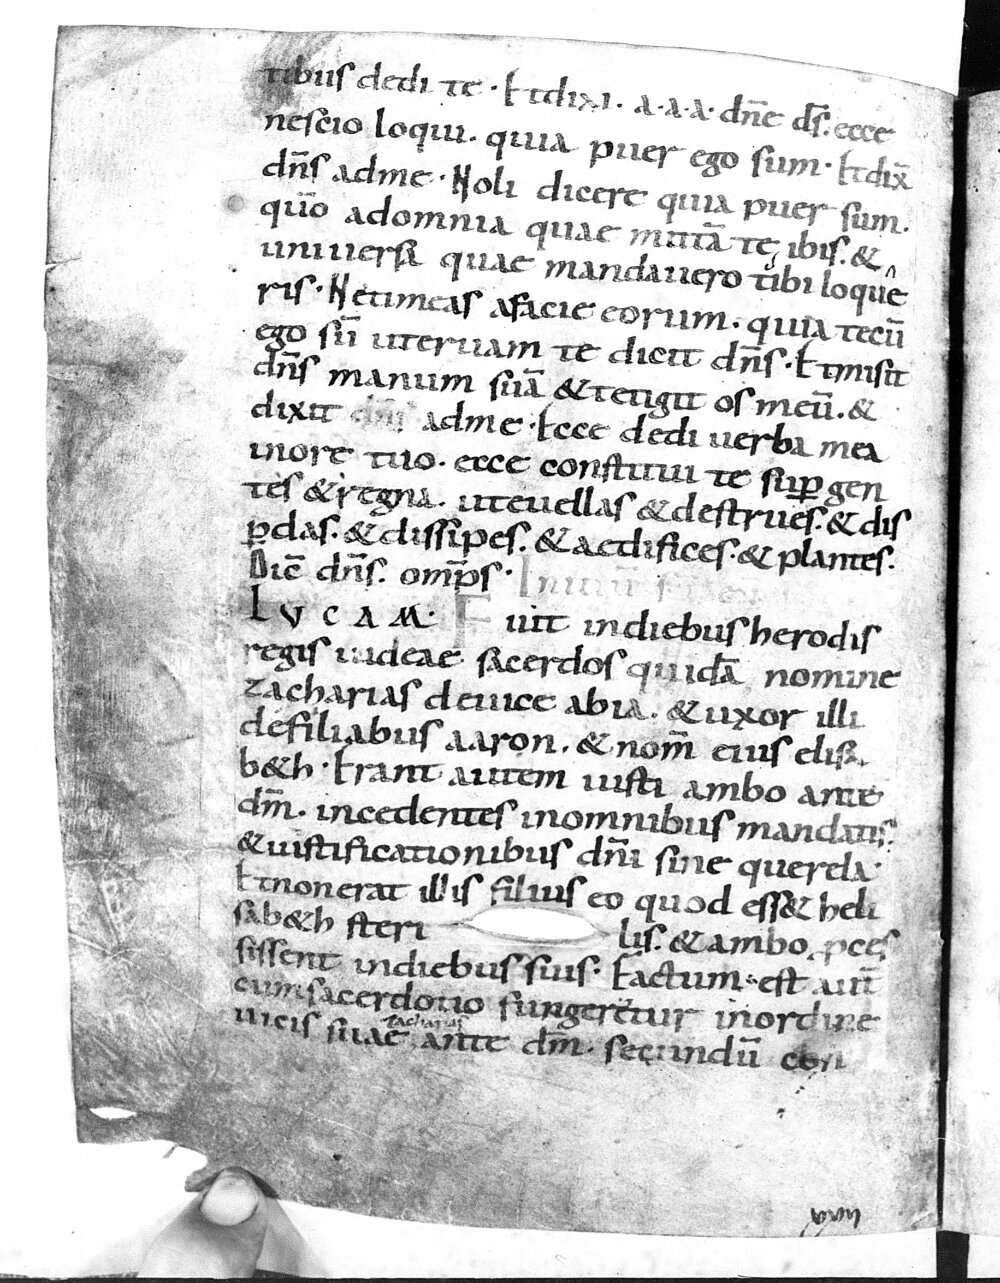 tibus dedi te · Et dixi · a · a · a · dn̄e d̄s · ecce
nescio loqui · quia puer ego sum · Et dix̄
dn̄s adme · Noli dicere quia puer sum ·
qūo adomnia quae mittā te ibis · &
uniuersa quae mandauero tibi loque
ris · Ne timeas afacie eorum · quia tecū
ego sū uteruam te dicit dn̄s · Et misit
dn̄s manum suā & tetigit os meū · &
dixit dn̄s adme · Ecce dedi uerba mea
inore tuo · ecce constitui te sup gen
tes & regna · uteuellas & destrues · & dis
pdas · & dissipes · & aedifices · & plantes ·
Dic̄ dn̄s · omp̄s · Initiū
LVCAM · Fuit indiebus herodis
regis iudeae sacerdos quidā nomine
zacharias deuice abia · & uxor illi
defiliabus aaron · & nom̄ eius elisa
b&h · Erant autem iusti ambo ante
dm̄ · incedentes inomnibus mandatis
& iustificationibus dn̄i sine querela ·
Et nonerat illis filius eo quod ess& heli
sab&h steri lis · & ambo pces
sissent indiebus suis · Factum est aut̄
cum sacerdotio fungeretur inordine
zacharias
uicis suae ante dm̄ · secundū con